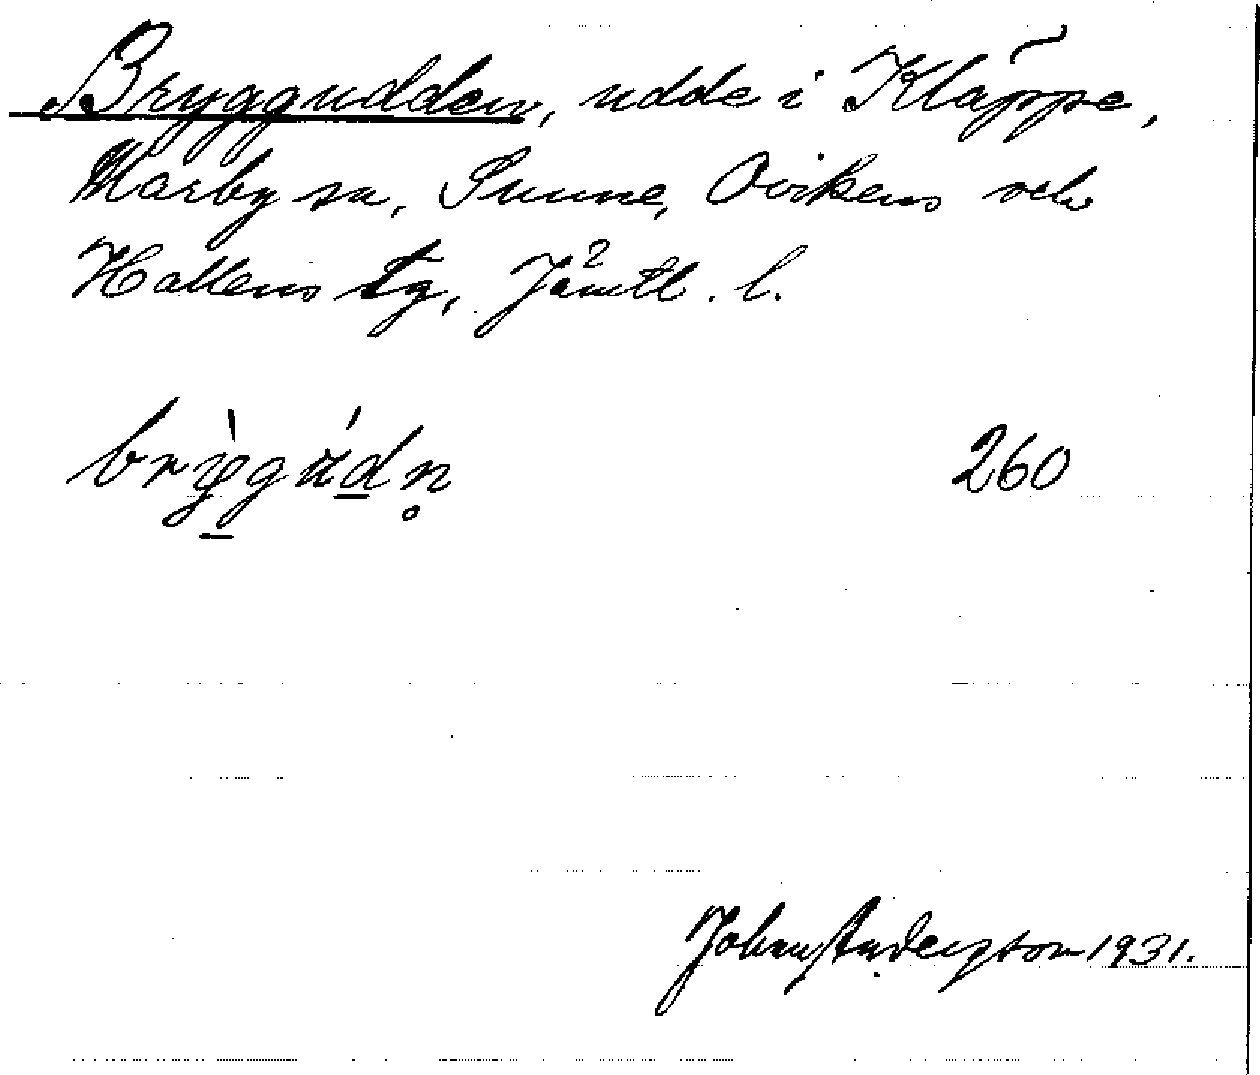 Bryggudden, udde i Kläppe,
Marby sn, Sunne, Ovikens och
Hallens tg, Jämtl. l.
260
Johan Anderstom 1931.